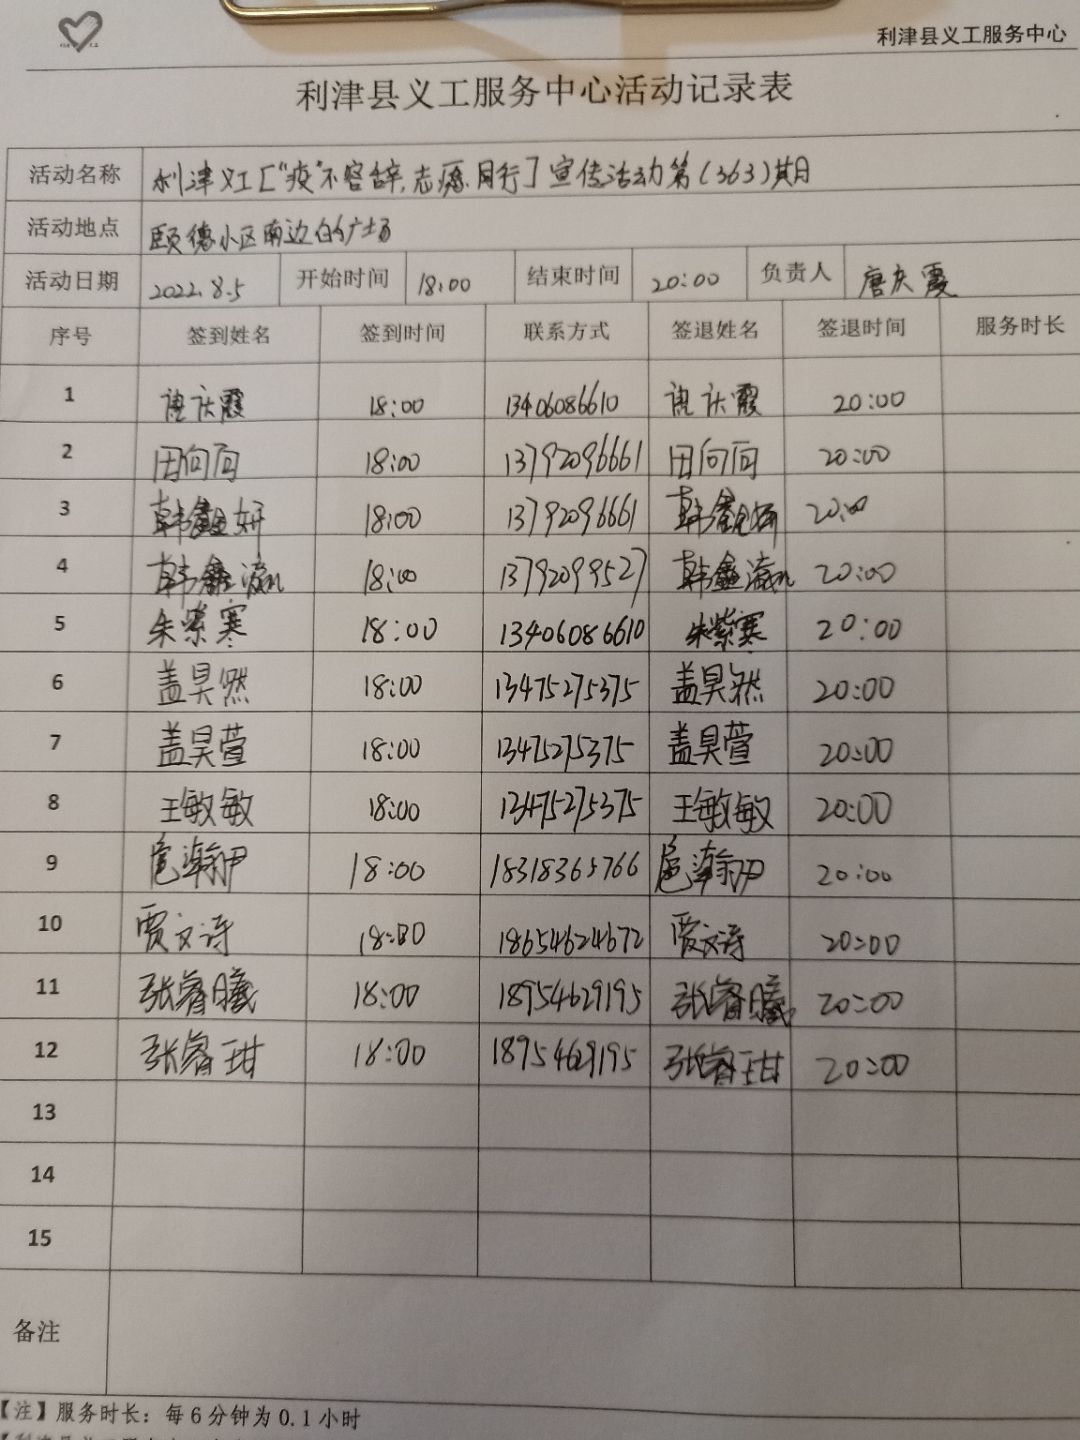 利津县义工服务中心
利津县义工服务中心活动记录表
活动名称 利津义工["疫"不容辞,志愿同行]宣传活动第(363)期
活动地点 颐德小区南边的广场
活动日期 2022.8.5 开始时间 18:00 结束时间 20:00 负责人 唐庆霞
序号 签到姓名 签到时间 联系方式 签退姓名 签退时间 服务时长
1 唐庆霞 18:00 13406086610 唐庆霞 20:00
2 田向向 18:00 13792096661 田向向 20:00
3 韩鑫妍 18:00 13792096661 韩鑫妍 20:00
4 韩鑫瀛 18:00 13792099527 韩鑫瀛 20:00
5 朱紫寒 18:00 13406086610 朱紫寒 20:00
6 盖昊然 18:00 13475275375 盖昊然 20:00
7 盖昊萱 18:00 13475275375 盖昊萱 20:00
8 王敏敏 18:00 13475275375 王敏敏 20:00
9 18:00 18318365766 20:00
10 贾文诗 18:00 18654624672 贾文诗 20:00
11 张睿曦 18:00 18954629195 张睿曦 20:00
12 张睿玵 18:00 18954629195 张睿玵 20:00
13
14
15
备注
【注】服务时长：每6分钟为0.1小时